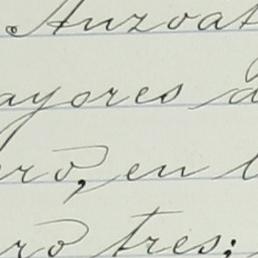 Anzoat
ayores d
ero, en l
ro tres;